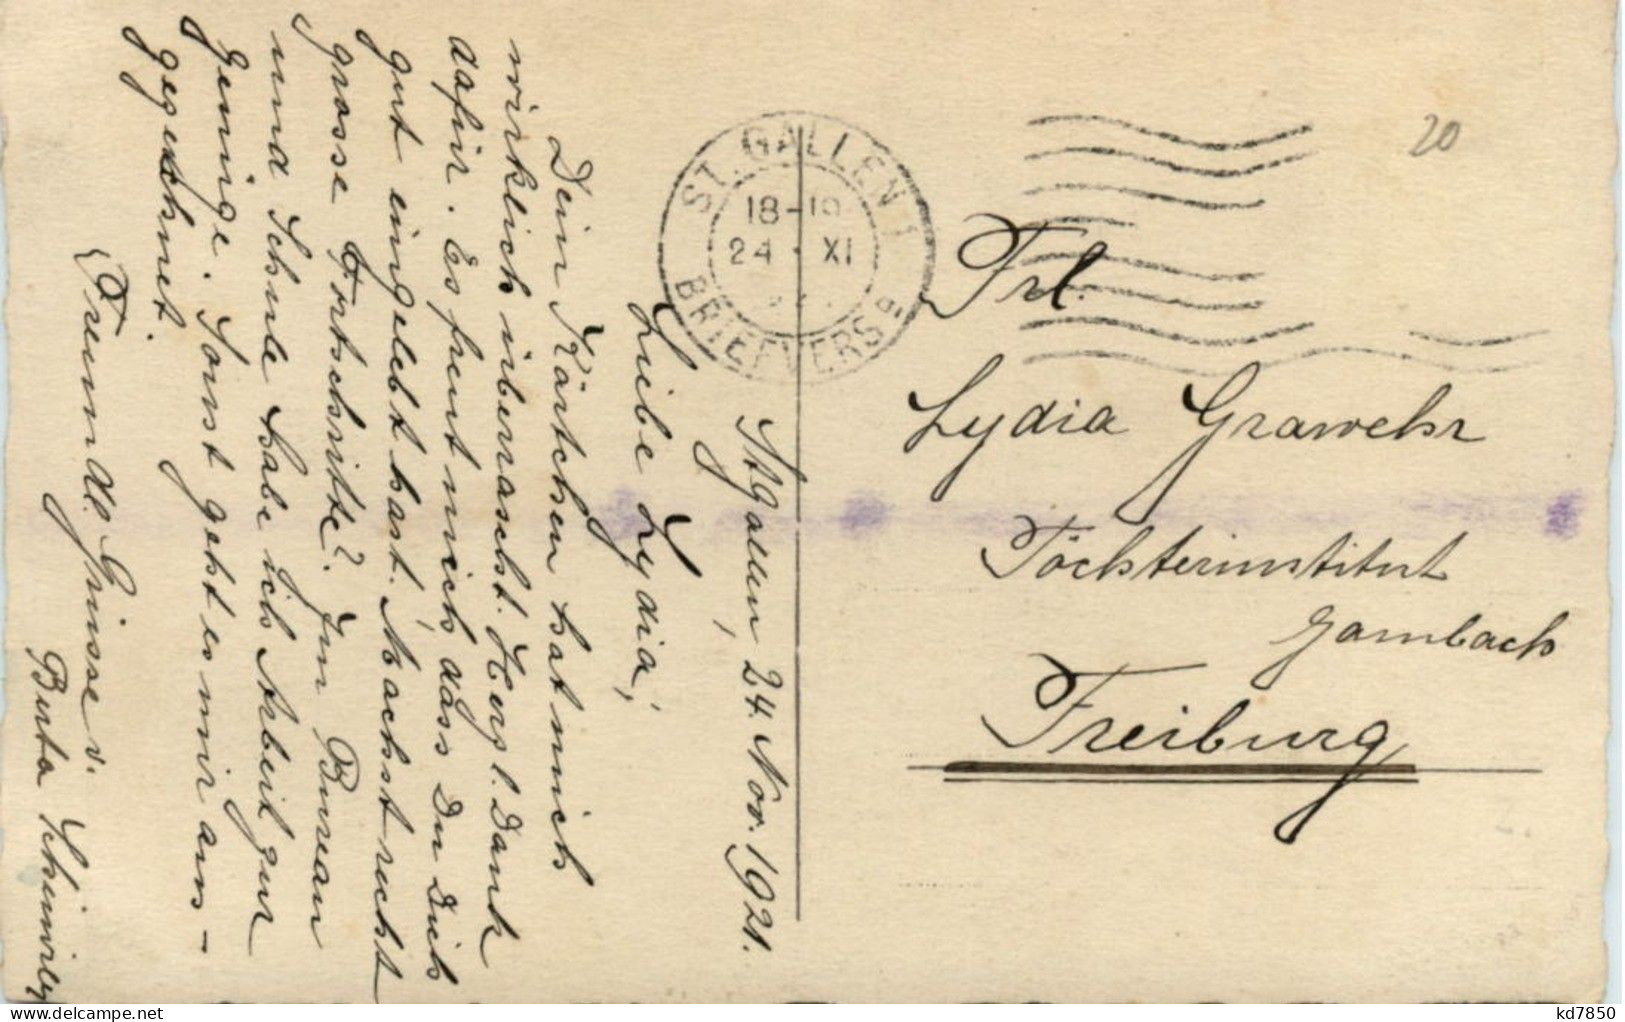 StGallen, 24. Nov. 1921.
Liebe Lydia,
Dein Kärtchen hat mich
wirklich überrascht. Herzl. Dank
dafür. Es freut mich dass Du Dich
gut eingelebt hast. Machst recht
grosse Fortschritte? Im Bureau
und Schule habe ich Arbeit zur
Genüge. Sonst geht es mir aus-
gezeichnet.
Freundl. Grüsse v.
Berta
ST. GALLEN 1
18-19
24 XI
BRIEFVERS
20
Frl.
Lydia Grawehr
Töchterinstitut
Gambach
Freiburg
kd7850